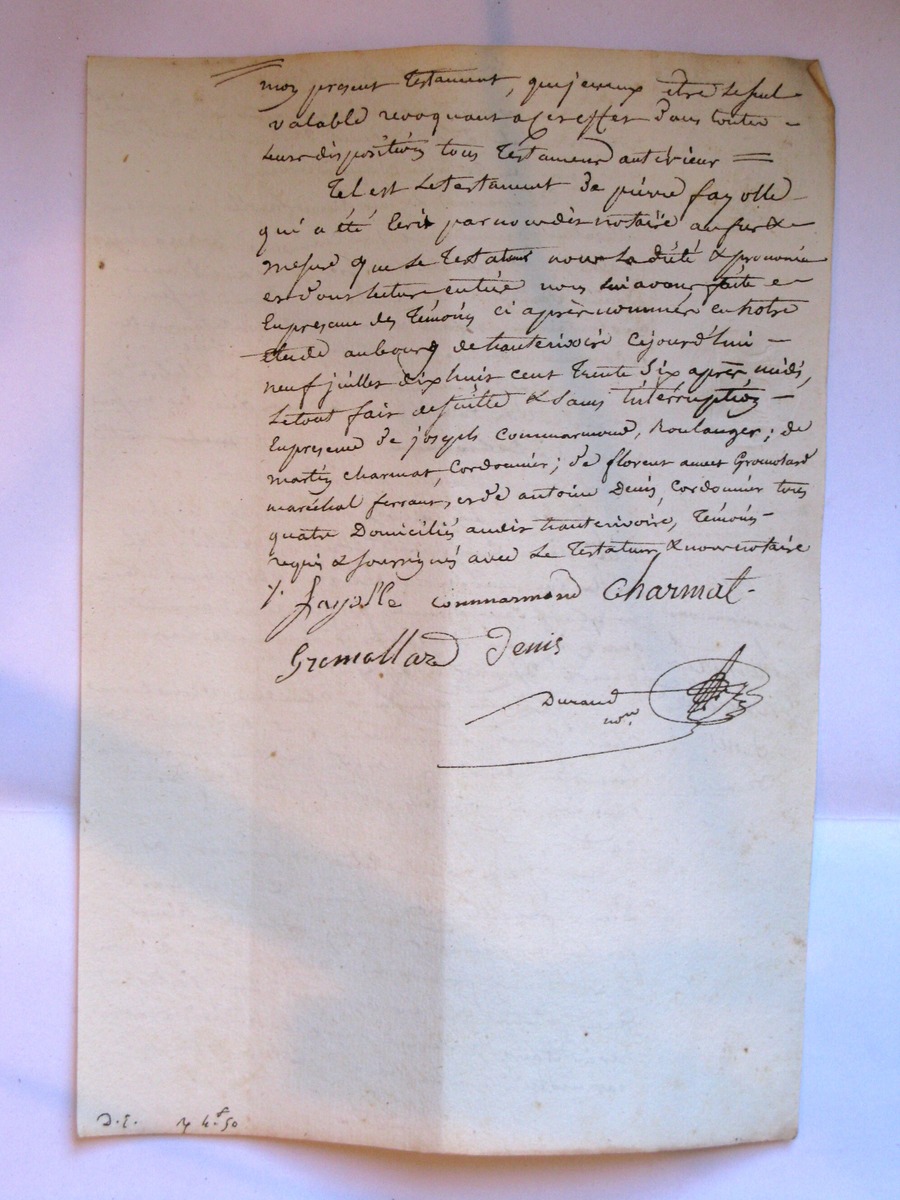 mon present testament, que je veux être le seul
valable revoquant a cet effet dans toutes
leurs dispositions tous Testamens anterieur =
Tel est le testament de pierre fayolle
qui a été Ecrit par nous dit notaire au fur &
mesure que le Testateur nous l'a dicté & prononcé
et d'ou lecture entiere nous lui avons faite
En presence des Témoins ci après nommés en notre
étude au bourg de hauterivoire cejourd'hui
neuf juillet dix huit cent Trente Six après midi,
le tout fait de suitte & sans intérruption
En presence de joseph Commarmond, Boulanger; de
martin charmat, Cordonnier; de florent Gromolard
maréchal ferrant, et de antoine Denis, Cordonnier tous
quatre Domiciliés audit hauterivoire, Témoins
requis & soussignés avec le Testateur, & nous notaire
/. fayolle commarmond Charmat.
Gromollard Denis
Durand
nore
D.E. 4f 50